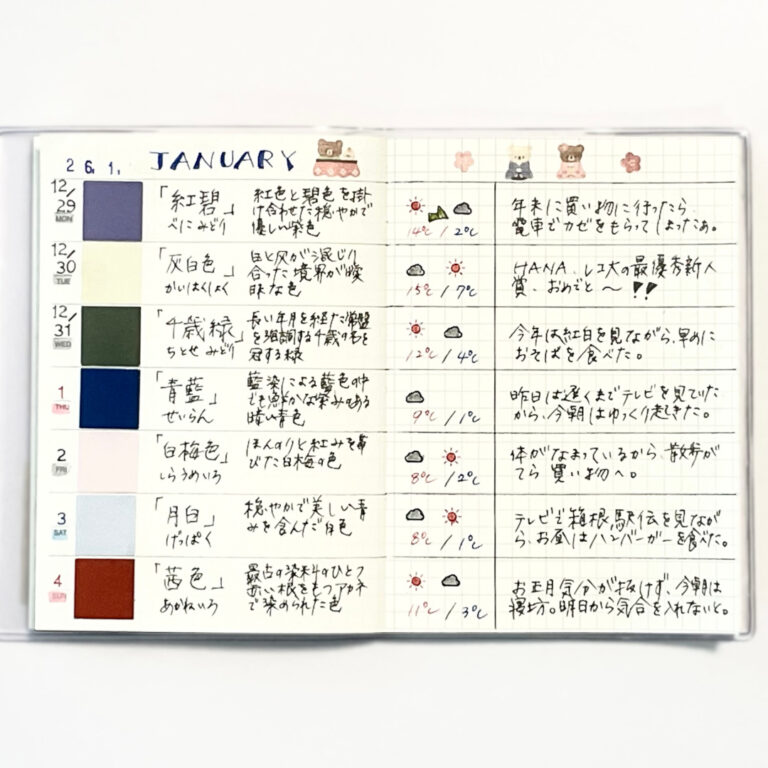 26.1. JANUARY
12/29 MON
「紅碧」
べにみどり
紅色と碧色を掛
け合わせた穏やかで
優しい染色
14℃ / 2℃
年末に買い物に行ったら、
電車でカゼをもらってしまったぁ。
12/30 TUE
「灰白色」
かいはくしょく
白と灰が混じり
合った境界が曖
昧な色
15℃ / 7℃
HANA、レコ大の最優秀新人
賞、おめでと〜!!
12/31 WED
「千歳緑」
ちとせみどり
長い年月を経た常盤
を強調する千歳の名を
冠する緑
12℃ / 4℃
今年は紅白を見ながら、早めに
おそばを食べた。
1 THU
「青藍」
せいらん
藍染による藍色の中
でも鮮かな染みのある
暗い青色
9℃ / 1℃
昨日は遅くまでテレビを見ていた
から、今朝はゆっくり起きた。
2 FRI
「白梅色」
しらうめいろ
ほんのりと紅みを帯
びた白梅の色
8℃ / 2℃
体がなまっているから、散歩が
てら買い物へ。
3 SAT
「月白」
げっぱく
穏やかで美しい青
みを含んだ白色
8℃ / 1℃
テレビで箱根駅伝を見なが
ら、お昼はハンバーガーを食べた。
4 SUN
「茜色」
あかねいろ
最古の染料のひとつ
赤い根をもつアカネ
で染められた色
11℃ / 3℃
お正月気分が抜けず、今朝は
寝坊。明日から気合を入れないと。